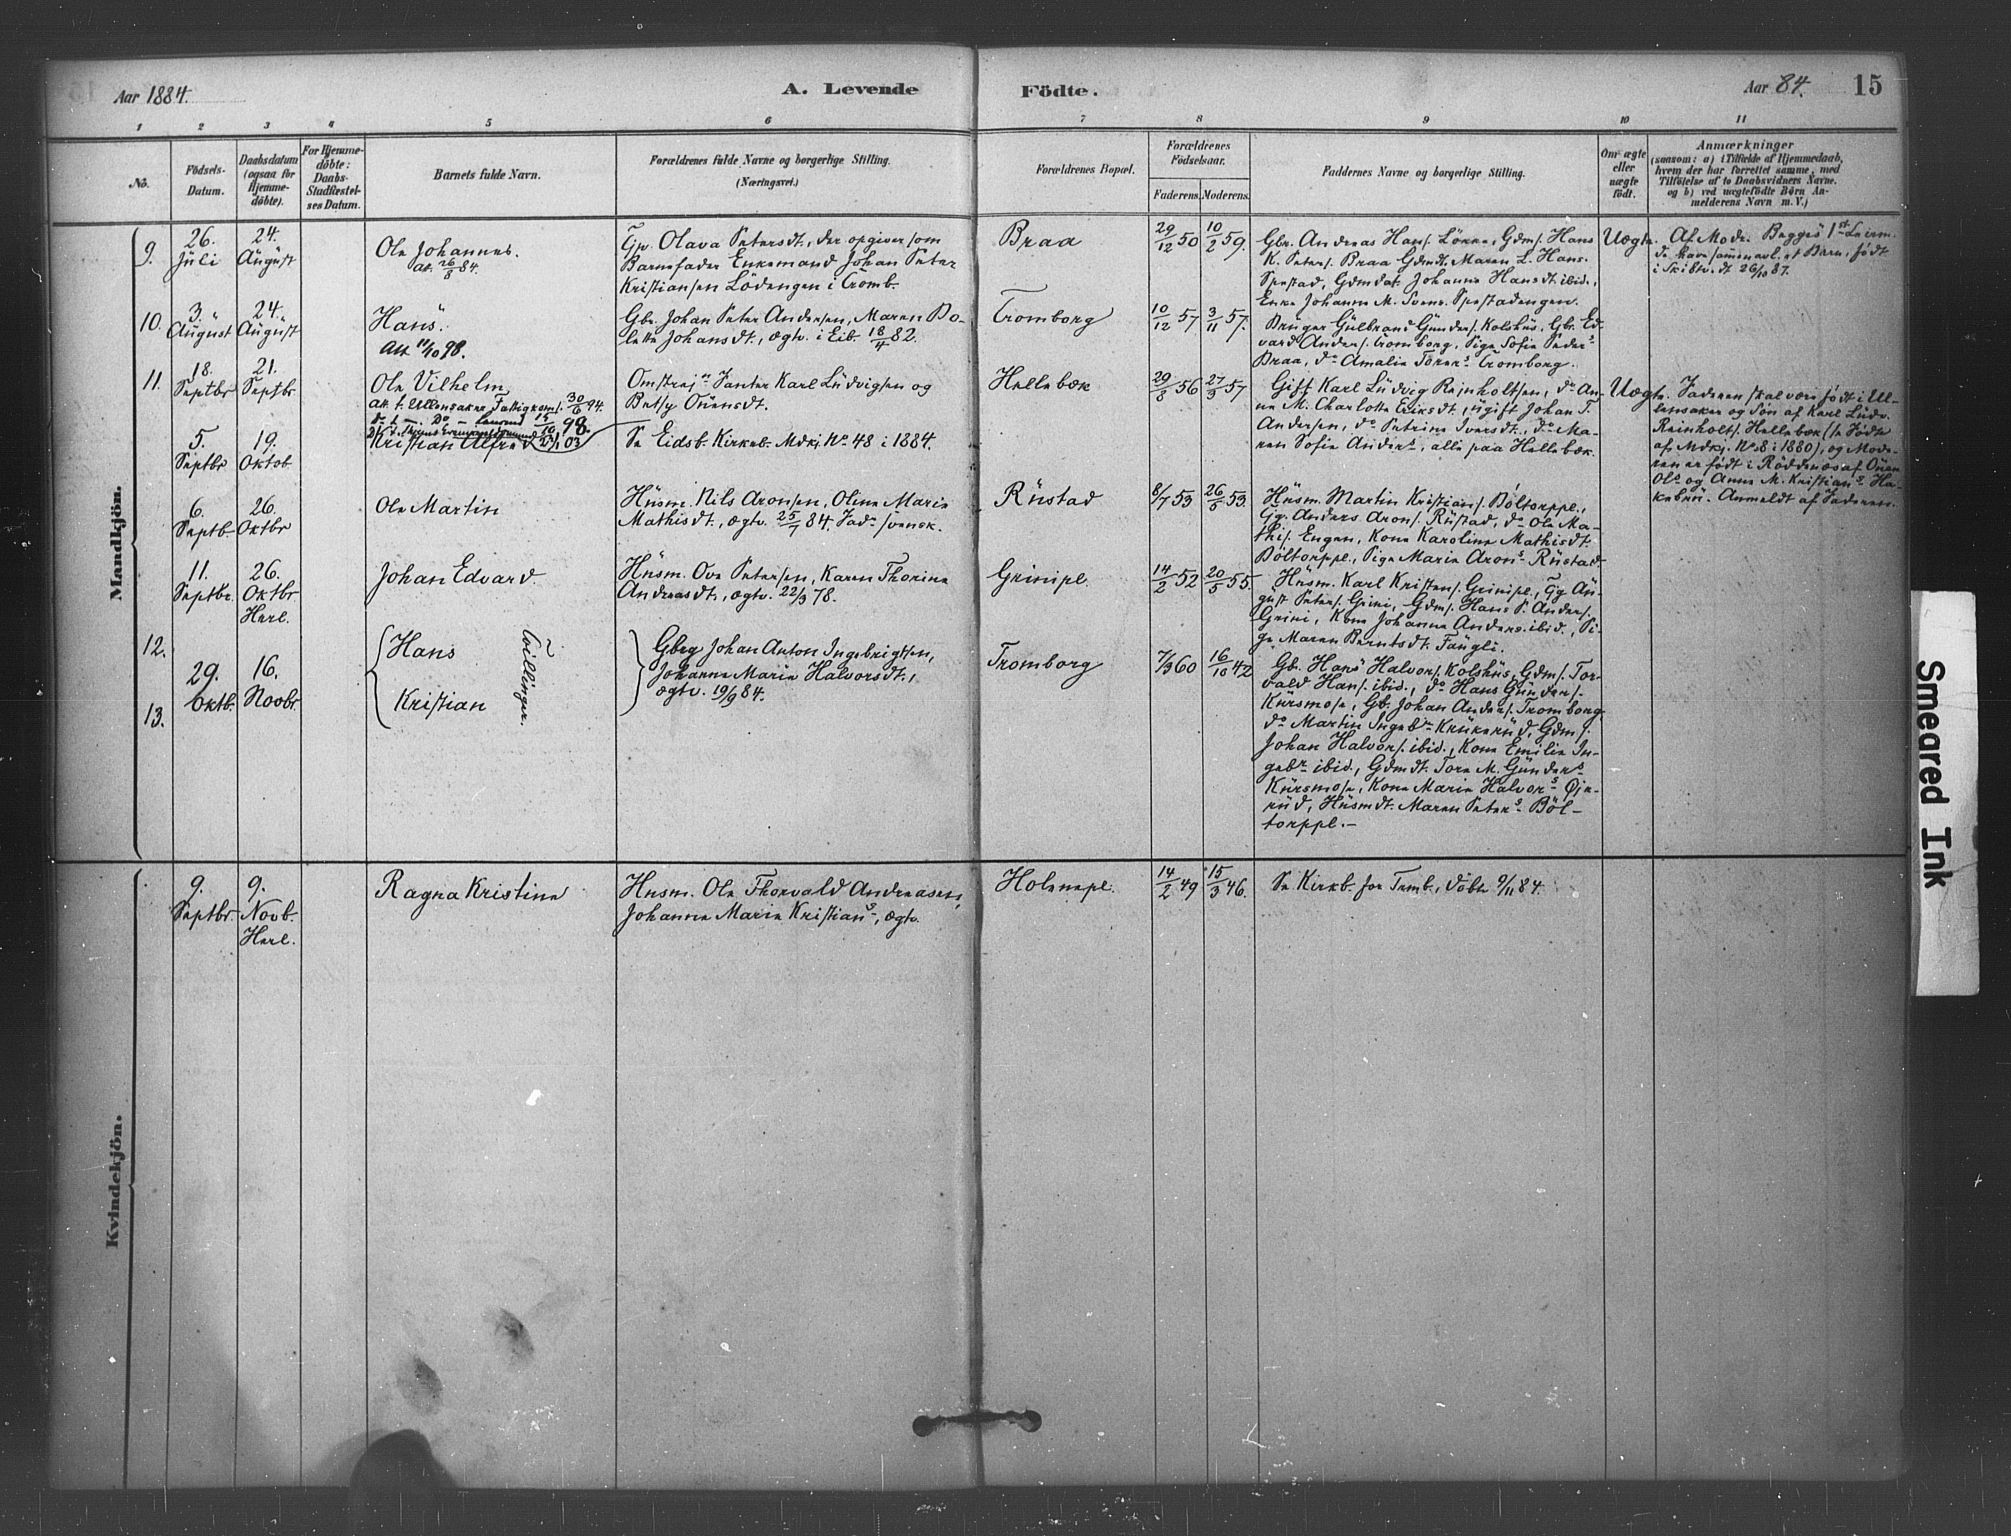 Aar 1884.
A. Levende
Födte.
Aar 84.
15
1 2 3 4 5 6 7 8 9 10 11
No.
Födsels-
Datum.
Daabsdatum
(ogsaa for
Hjemme-
döbte).
For Hjemme-
döbte:
Daabs-
Stadfæstel-
ses Datum.
Barnets fulde Navn.
Forældrenes fulde Navne og borgerlige Stilling.
(Næringsvei.)
Forældrenes Bopæl.
Forældrenes
Födselsaar.
Faderens. Moderens.
Faddernes Navne og borgerlige Stilling.
Om ægte
eller
uægte
født.
Anmærkninger
(saasom: a) i Tilfælde af Hjemmedaab,
hvem der har forrettet samme, med
Tilföielse af to Daabsvidners Navne.
og b) ved uægtefödte Börn An-
melderens Navn m. V.)
Mandkjön.
9.
26.
Juli
24.
August
Ole Johannes.
Att. 26/8 84.
Olava Petersdt., der opgiver som
Barnefader Enkemand Johan Peter
Kristiansen Lödengen i Tromb.
Braa
29/12 50
10/2 59.
Gbr. Andreas Hans. Lökke, Gdm. Hans
K. Peters. Braa Gdmdt. Maren L. Hans.
Spestad, Gdmdat. Johanne Hansdt. ibid.,
Enke Johanne M. Svens. Spestadengen.
Uægte.
Af Mode. Begges 1st Leierm.
i Skibtv. dt 26/10 87.
10.
3.
August
24.
August
Hans.
Att 11/10 98.
Gbr. Johan Peter Andersen, Maren Bo-
lette Johansdt., ægtv. i Eib. 18/4 82.
Tromborg
10/12 57
3/11 57.
Brüger Gulbrand Gunders. Kolshus, Gbr. Ed-
vard Anders. Tromborg, Pige Sofie Peders
Braa, do Amalie Torers Tromborg.
11.
18.
Septbr
21.
Septbr.
Ole Vilhelm
Att. t. Ullensaker Fattigkom. 30/6 94.
Karl Ludvigsen og
Betsy Ouensdt.
Hellebæk
56
57
Gift Karl Ludvig Reinholtsen, do An-
ne M. Charlotte Eriksdt., ugift Johan T.
Andersen, do Petrine Iversdt., do Ma-
ren Sofie Anders, alle paa Hellebæk.
Uægte.
Faderen skal være født i Ul-
lensaker og Søn af Karl Ludv.
Reinholts. Hellebæk (se Fødte
af Mdkj. No 8 i 1880), og Mode-
ren er født i Röddenæs af Ouen
Ols og Anne M. Kristians Ha-
kebru. Anmeldt af Faderen.
5.
Septbr
19.
Oktob.
Kristian Alfred
Se Eidsb. Kirkeb. Mdkj. No 48 i 1884.
6.
Septb.
26.
Oktbr
Ole Martin
Husm. Nils Aronsen, Oline Marie
Mathisdt., ægtv. 25/7 84 Fadr svensk.
Rustad
8/7 53
26/5 53.
Husm. Martin Kristians. Böltorppl.,
Gg. Anders Arons. Rustad, do Ole Ma-
this. Engen, Kone Karoline Mathisdt.
Böltorppl., Pige Marie Arons Rustad
11.
Septbr.
26.
Oktbr.
Herl.
Johan Edvard.
Husm. Ove Petersen, Karen Thorine
Andreasdt., ægtv. 22/3 78.
Grinipl.
14/2 52
20/5 55.
Husm. Karl Kristens. Grinipl., Gg Au-
gust Peters. Grini, Gdms. Hans P. Anders.
Grini, Kone Johanne Anders. ibid., Pi-
ge Maren Berntsdt. Fangli.
12.
13.
29.
Oktb.
16.
Novbr.
Hans
Kristian
Tvillinger.
Gbrg Johan Anton Ingebrigtsen,
Johanne Marie Halvorsdt.,
ægtv. 19/9 84.
Tromborg
7/3 60
16/10 42
Gb. Hans Halvors. Kolshus, Gdm. Tor-
vald Hans. ibid., do Hans Gunders.
Kursmose, Gb. Johan Anders. Tromborg,
do Martin Ingebr Krukerud, Gdms.
Johan Halvors. ibid., Kone Emilie In-
gebr ibid., Gdmdt. Tore M. Gunders
Kursmose, Kone Marie Halvors Øje-
rud, Husmdt. Maren Peters Böl-
torppl.—
Kvindekjön.
9.
Septbr.
9.
Novb.
Herl.
Ragna Kristine
Husm. Ole Thorvald Andreasen,
Johanne Marie Kristians, ægtv.
Holenepl.
14/2 49
15/3 46.
Se Kirkb. for Tremb., Döbte 9/11 84.
Smeared Ink